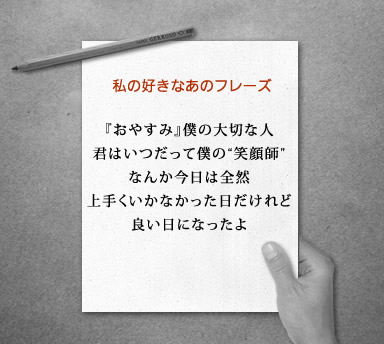 私の好きなあのフレーズ
『おやすみ』僕の大切な人
君はいつだって僕の“笑顔師”
なんか今日は全然
上手くいかなかった日だけれど
良い日になったよ